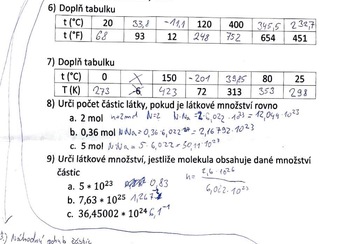 6) Doplň tabulku
t (°C) 20 33,8 -11,1 120 400 345,5 232,7
t (°F) 68 93 12 248 752 654 451
7) Doplň tabulku
t (°C) 0 150 -201 39,85 80 25
T (K) 273 6 423 72 313 353 298
8) Urči počet částic látky, pokud je látkové množství rovno
a. 2 mol n=2mol N=2 N=NA = 2·6,022·10²³ = 12,044·10²³
b. 0,36 mol N=NA = 0,36·6,022 = 2,16792·10²³
c. 5 mol N=NA = 5·6,022 = 30,11·10²³
9) Urči látkové množství, jestliže molekula obsahuje dané množství
částic n =
a. 5 * 10²³ 0,83 6,022·10²³
b. 7,63 * 10²⁵
c. 36,45002 * 10²⁴